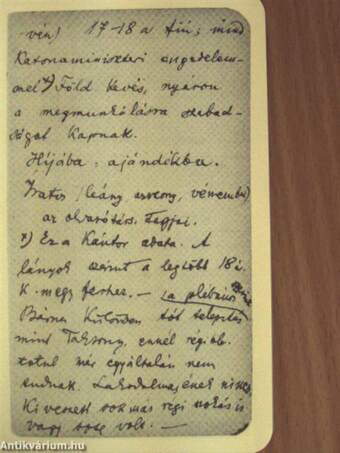 vén) 17-18 a fiú; mind
Katonaminiszteri engedelem-
mel x) Föld kevés, nyáron
a megmunkálásra szabad-
ságot kapnak.
Hijába, ajándékba.
Iratos (leány, asszony, vénember)
az olvasótárs. tagjai.
x) Ez a Kántor adata. A
lányok szerint a legtöbb 18 é.
k. megy férhez. — (a plébános
Bárna Különben tót település
mint Taksony, ennél régibb.
tótul már egyáltalán nem
tudnak. Lakodalmas ének nincs
Kiveszett sok más régi nótás is
vagy sose volt. —
Antikvárium.hu